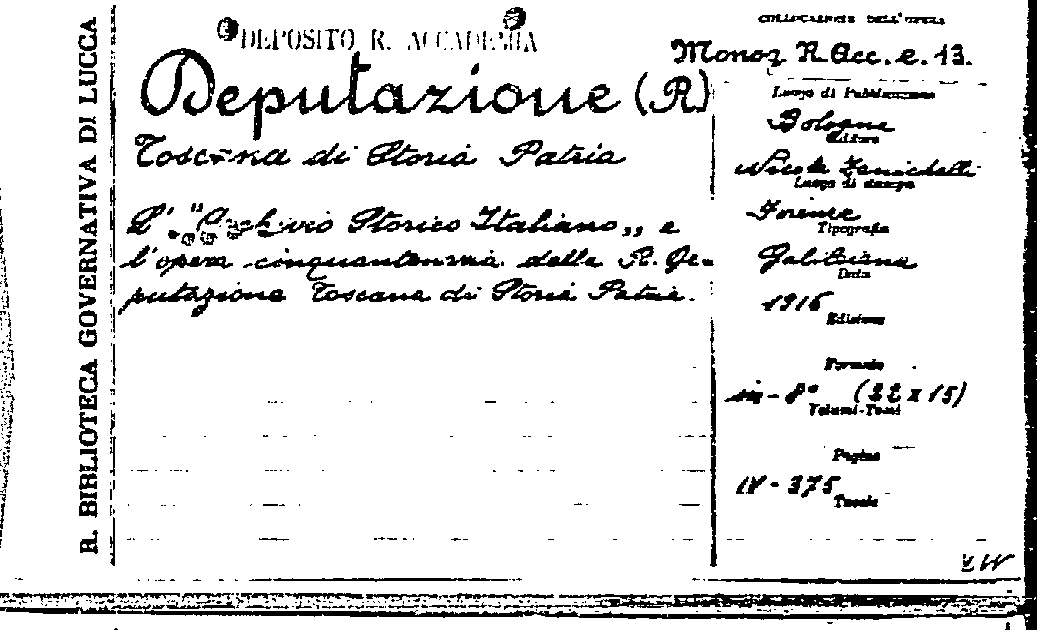 R. BIBLIOTECA GOVERNATIVA DI LUCCA
DEPOSITO R. ACCADEMIA
Deputazione (R)
Toscana di Storia Patria
L' "Archivio Storico Italiano„ e
l'opera cinquantenaria della R. De-
putazione Toscana di Storia Patria.
COLLOCAZIONE DELL'OPERA
Monog R. Acc. e. 13.
Luogo di Pubblicazione
Bologna
Editore
Nicola Zanichelli
Luogo di stampa
Firenze
Tipografia
Galileiana
Data
1916
Edizione
Formato
in - 8° (22 x 15)
Volumi-Tomi
Pagine
IV - 375
Tavole